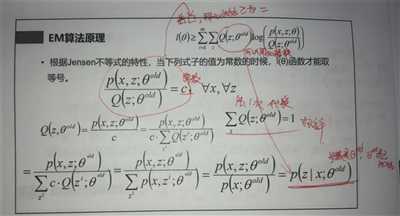 EM算法原理
l(θ) ≥ ∑_{i=1}^{m} ∑_{z} Q(z;θ^{old}) log( p(x,z;θ) / Q(z;θ^{old}) )
• 根据Jensen不等式的特性，当下列式子的值为常数的时候，l(θ)函数才能取
等号。
p(x,z;θ^{old}) / Q(z;θ^{old}) = c, ∀x,∀z
常数
Q(z;θ^{old}) = p(x,z;θ^{old}) / c = p(x,z;θ^{old}) / (c·∑_{z^i} Q(z^i;θ^{old}))
∑_{z} Q(z;θ^{old}) = 1
= p(x,z;θ^{old}) / ∑_{z^i} c·Q(z^i;θ^{old}) = p(x,z;θ^{old}) / ∑_{z^i} p(x,z^i;θ^{old}) = p(x,z;θ^{old}) / p(x;θ^{old}) = p(z|x;θ^{old})